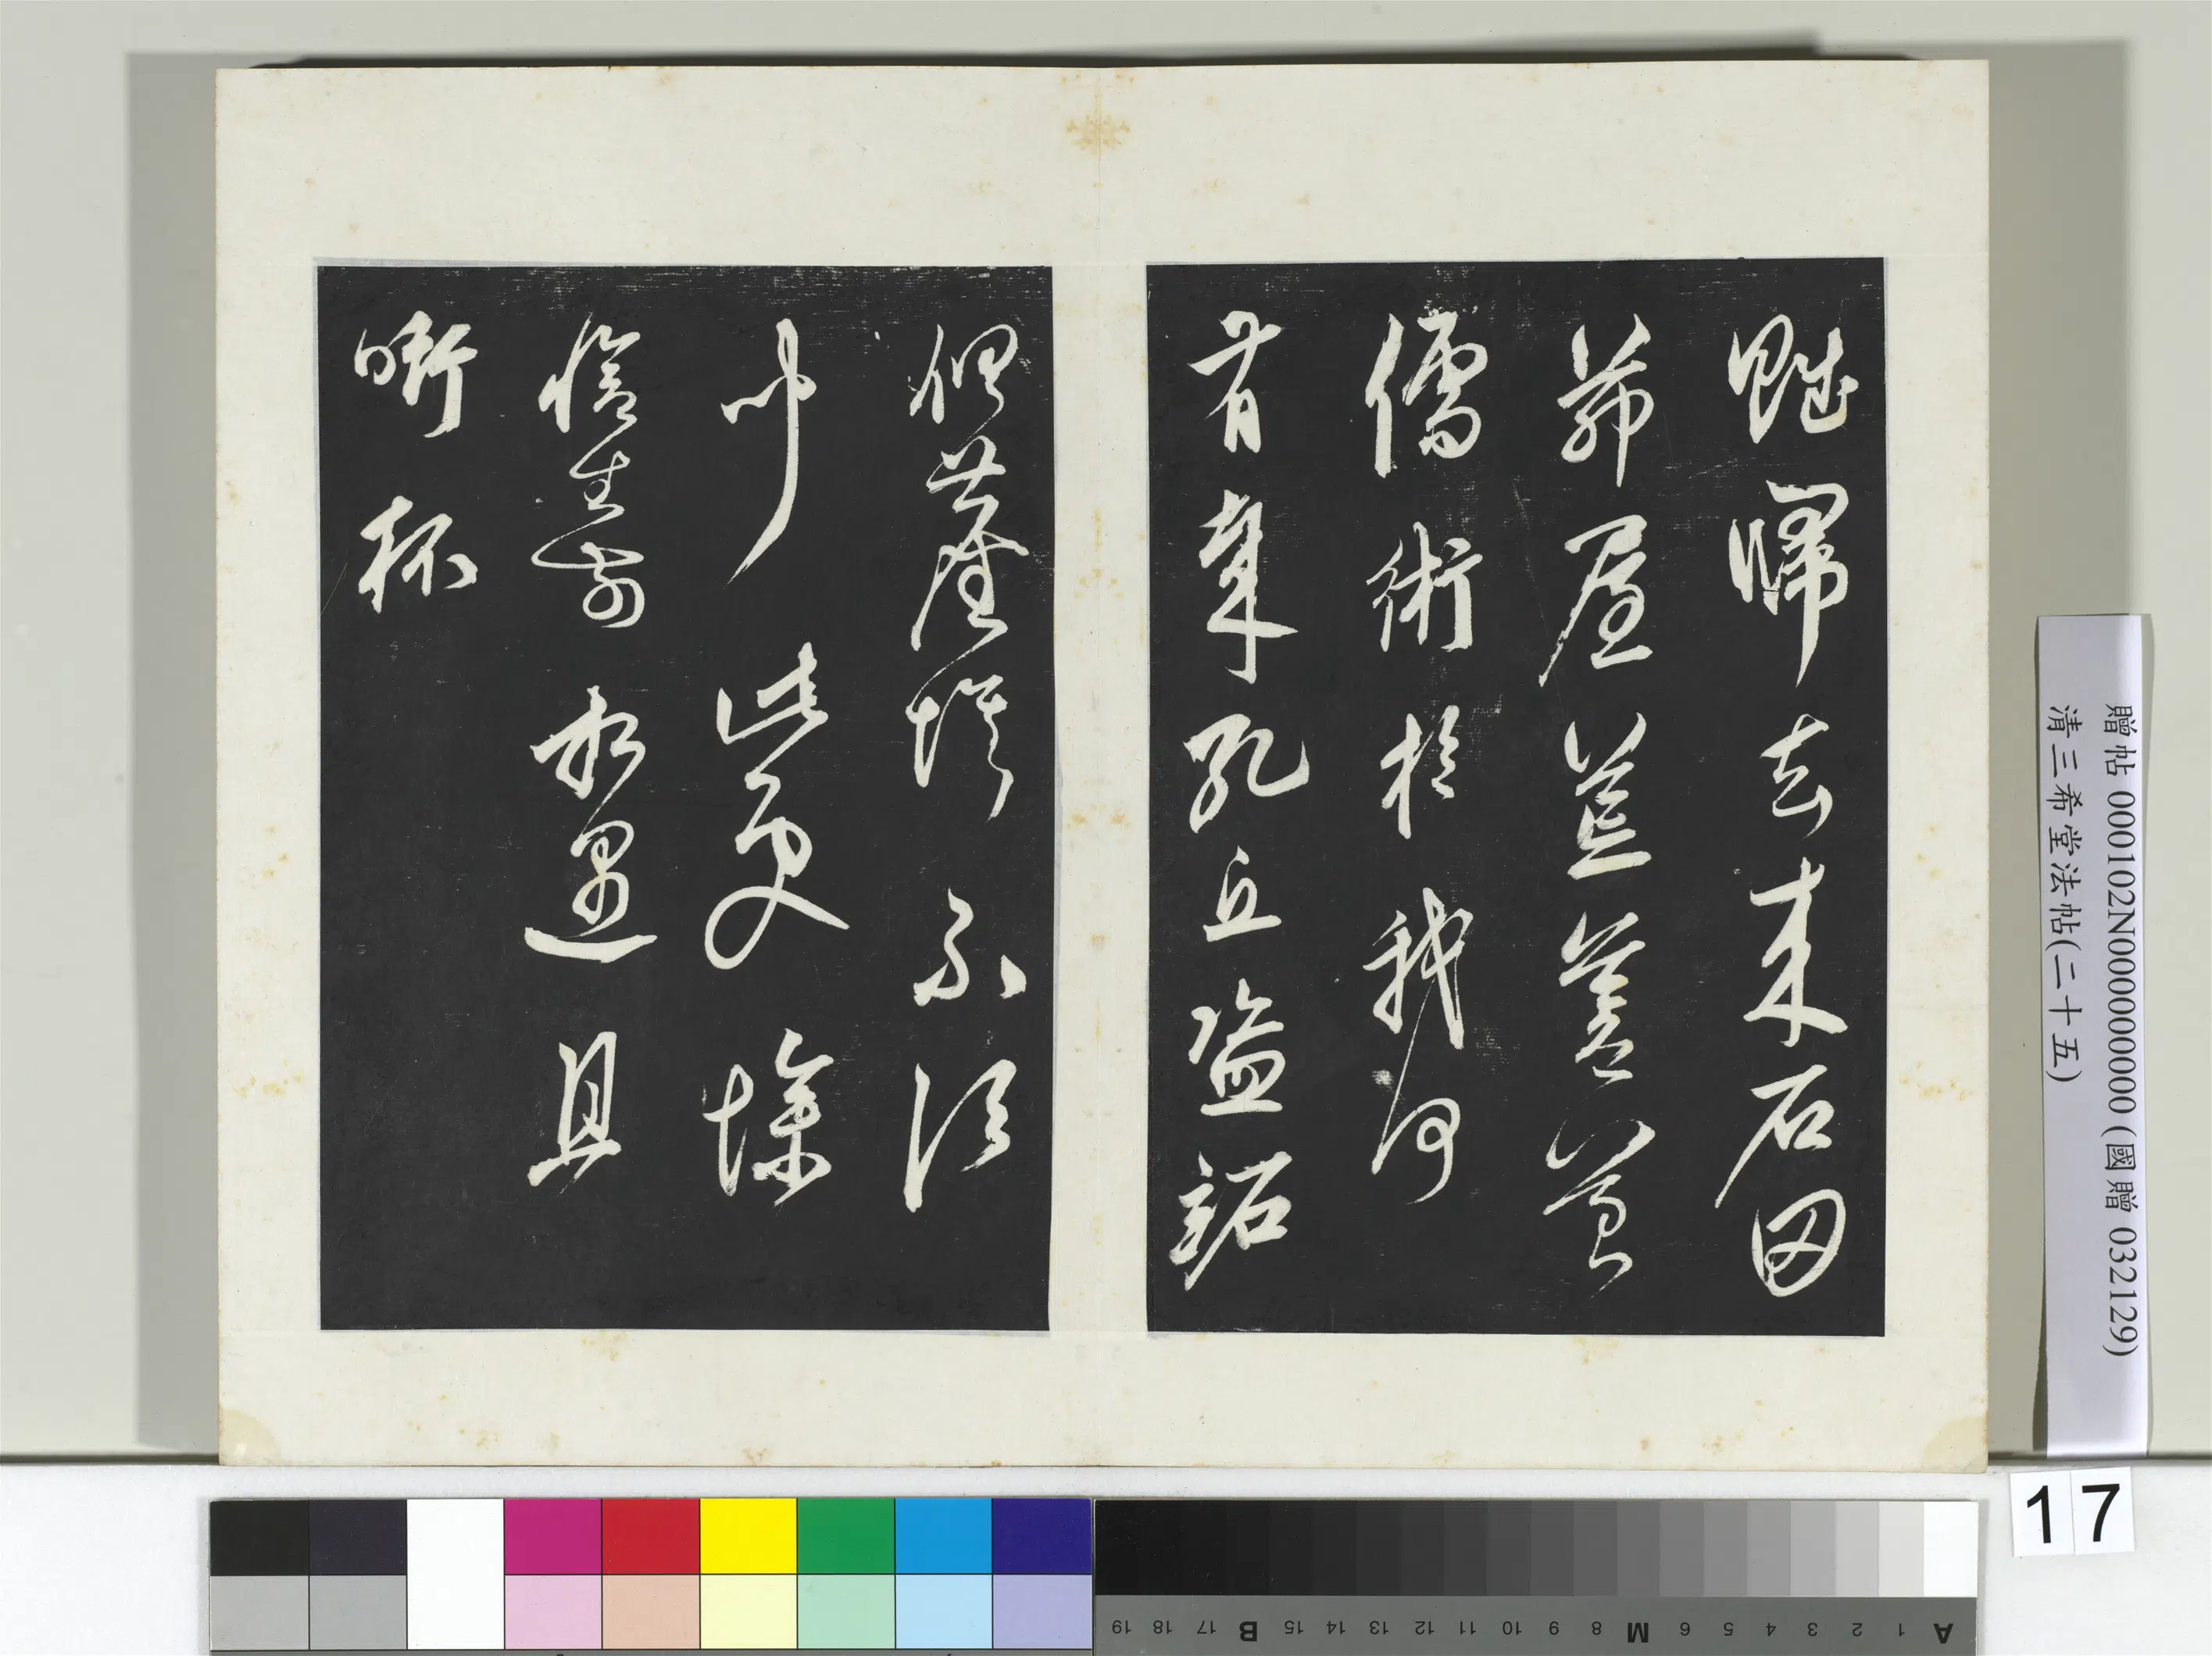 賦歸去來石田
茅屋荒蒼苔
儒術於我何
有哉孔丘盜跖
俱塵埃不須
聞此意慘
愴生前相遇且
銜杯
贈帖 000102N000000000 (國贈 032129)
清三希堂法帖(二十五)
17
A 1 2 3 4 5 6 M 8 9 10 11 12 13 14 15 B 17 18 19